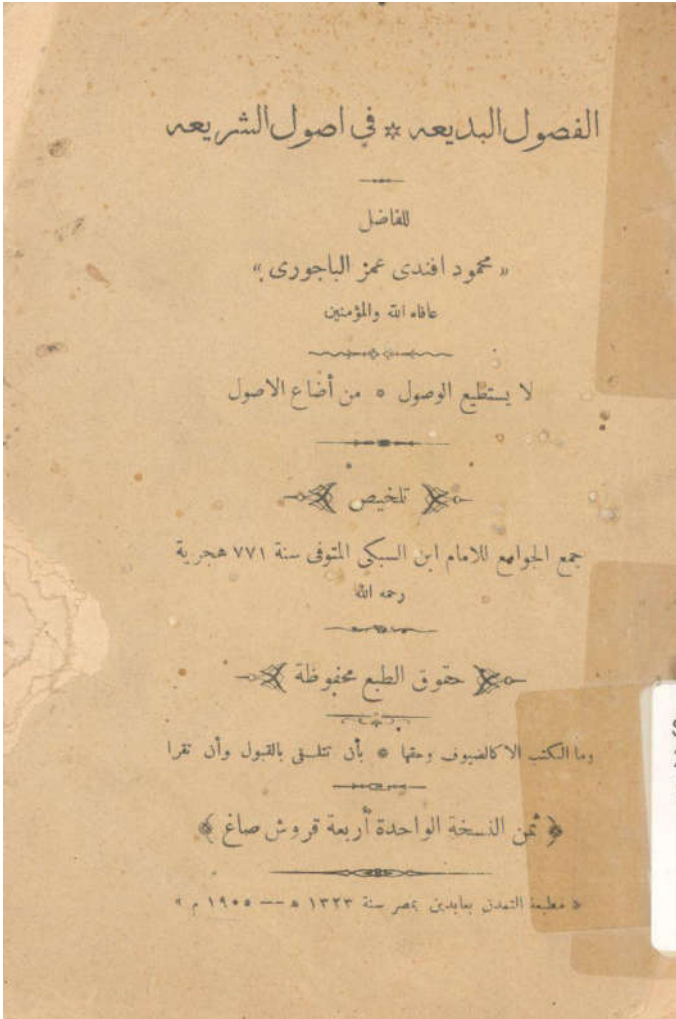 الفصول البديعه * في اصول الشريعه
للفاضل
« محمود افندى عمر الباجورى »
عافاه الله والمؤمنين
لا يستطيع الوصول * من أضاع الاصول
تلخيص
جمع الجوامع للامام ابن السبكي المتوفى سنة ٧٧١ هجرية
رحمه الله
حقوق الطبع محفوظة
وما الكتب الا كالضيوف وحقها * بأن تتلقى بالقبول وأن تقرا
﴿ ثمن النسخة الواحدة أربعة قروش صاغ ﴾
« مطبعة التمدن بعابدين بمصر سنة ١٣٢٣ ه — ١٩٠٥ م »